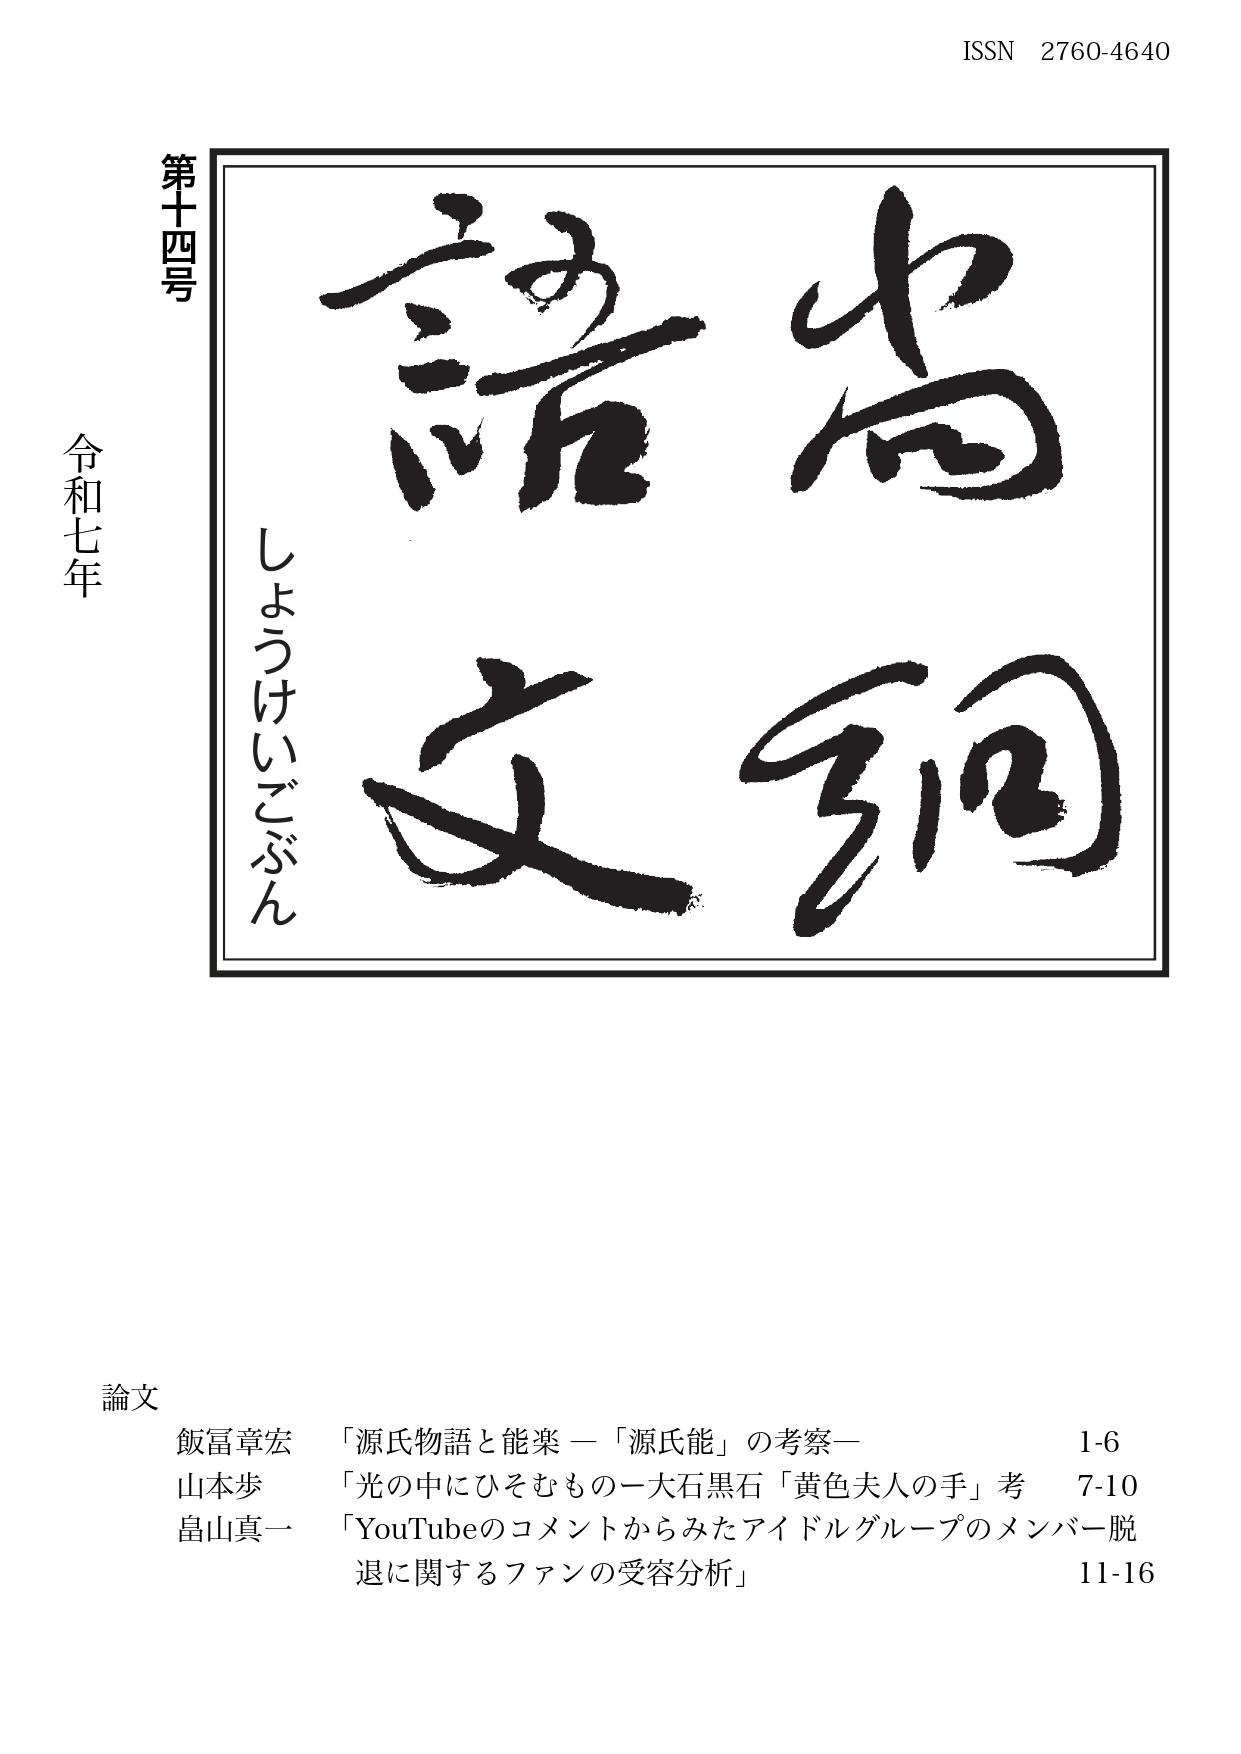 ISSN　2760-4640
第十四号
尚絅
語文
しょうけいごぶん
令和七年
論文
飯冨章宏　「源氏物語と能楽 ―「源氏能」の考察―　1-6
山本歩　「光の中にひそむものー大石黒石「黄色夫人の手」考　7-10
畠山真一　「YouTubeのコメントからみたアイドルグループのメンバー脱
退に関するファンの受容分析」　11-16